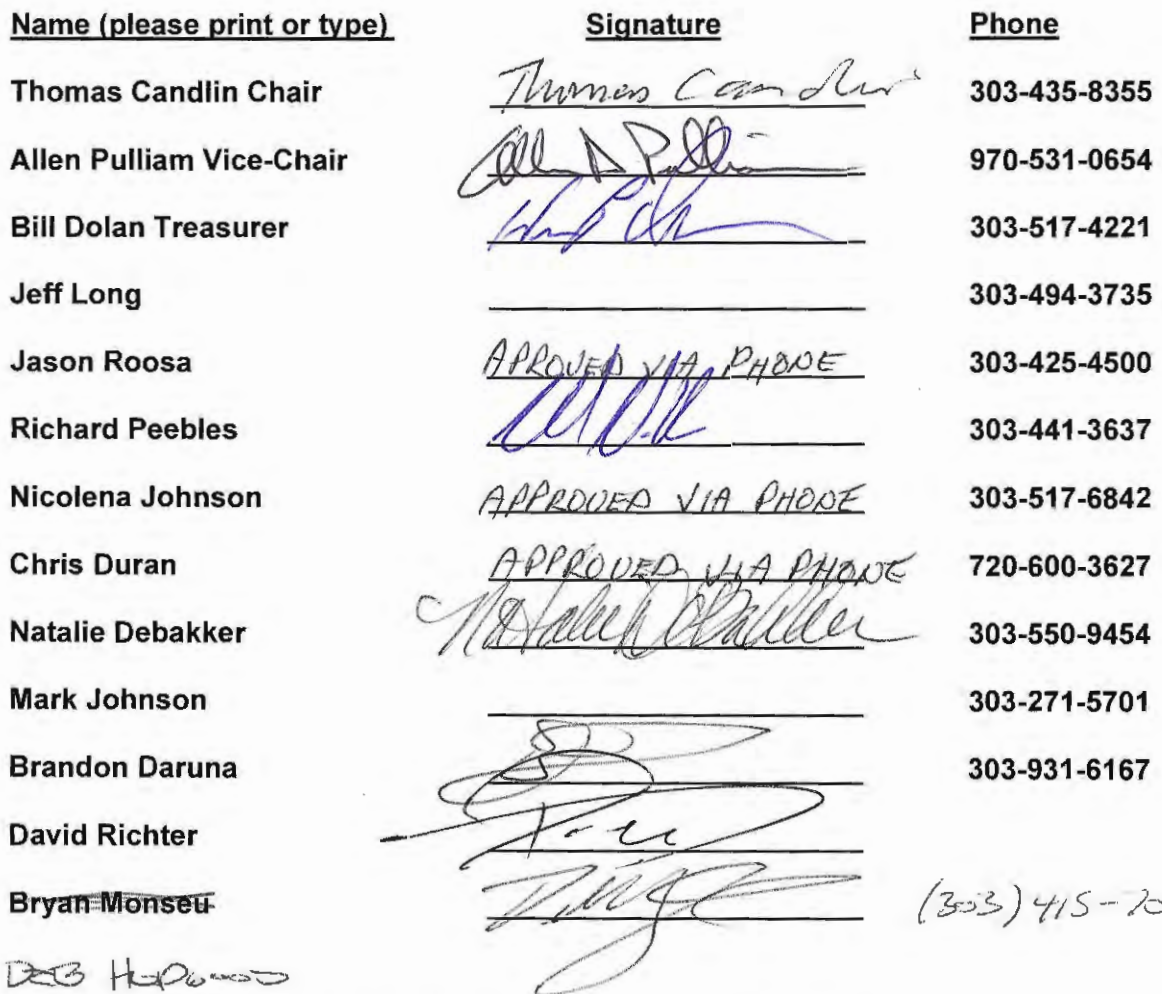 Name (please print or type) Signature Phone
Thomas Candlin Chair Thomas Candlin 303-435-8355
Allen Pulliam Vice-Chair Allen D Pulliam 970-531-0654
Bill Dolan Treasurer 303-517-4221
Jeff Long 303-494-3735
Jason Roosa APROVED VIA PHONE 303-425-4500
Richard Peebles 303-441-3637
Nicolena Johnson APPROVED VIA PHONE 303-517-6842
Chris Duran APPROVED VIA PHONE 720-600-3627
Natalie Debakker Natalie DeBakker 303-550-9454
Mark Johnson 303-271-5701
Brandon Daruna 303-931-6167
David Richter
Bryan Monseu (303) 415-70
DEB HOPWOOD